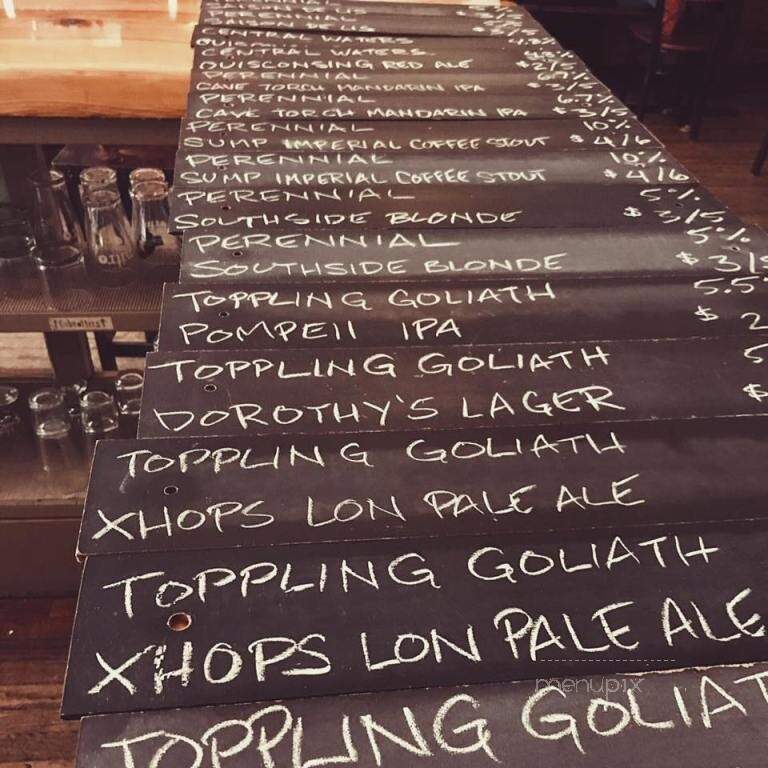 PERENNIAL
PERENNIAL
CENTRAL WATERS
CENTRAL WATERS
OUISCONSING RED ALE $2/5
PERENNIAL 6.7%
CAVE TORCH MANDARIN IPA $3/5
PERENNIAL 6.7%
CAVE TORCH MANDARIN IPA $3/5
PERENNIAL 10%
SUMP IMPERIAL COFFEE STOUT $4/6
PERENNIAL 10%
SUMP IMPERIAL COFFEE STOUT $4/6
PERENNIAL 5%
SOUTHSIDE BLONDE $3/5
PERENNIAL 5%
SOUTHSIDE BLONDE $3/5
TOPPLING GOLIATH 5.5
POMPEII IPA $2
TOPPLING GOLIATH 5
DOROTHY'S LAGER $
TOPPLING GOLIATH
XHOPS LON PALE ALE
TOPPLING GOLIATH
XHOPS LON PALE ALE
menupix
TOPPLING GOLIAT